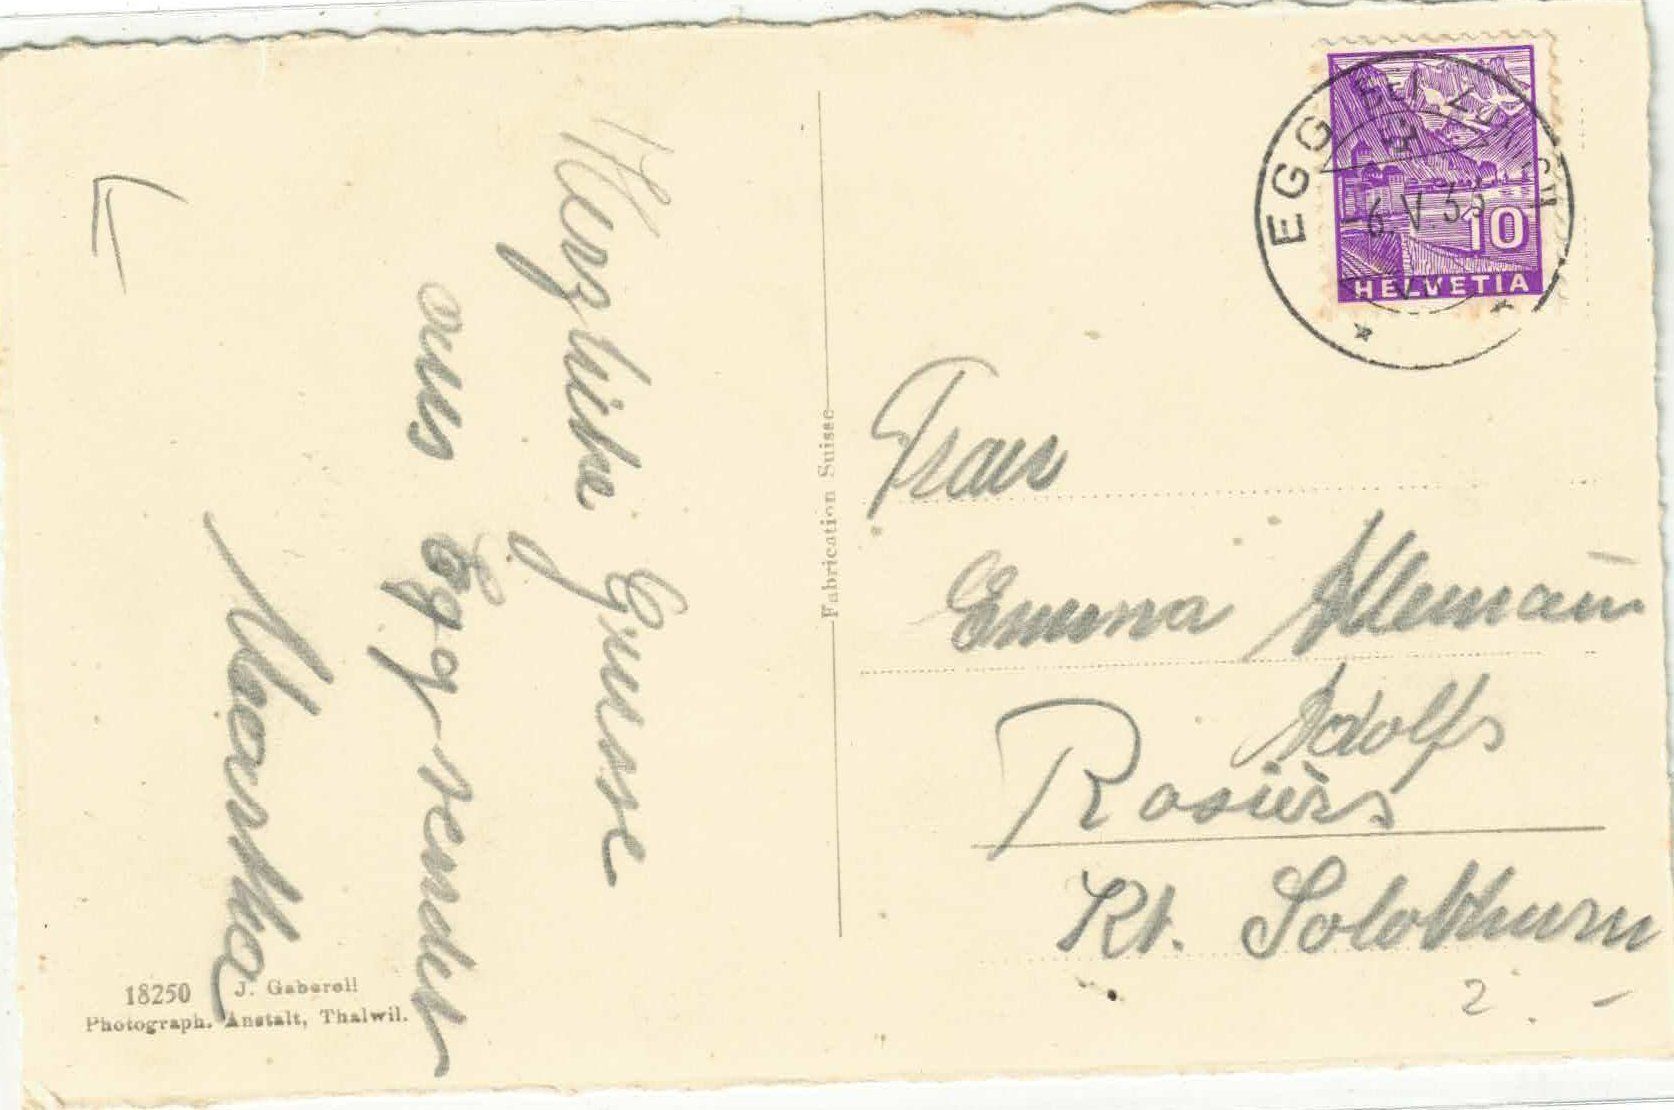 Herzliche Grüsse
aus Egg sendet
18250 J. Gaberell
Photograph. Anstalt, Thalwil.
Fabrication Suisse
EGG BEI ZÜRICH
6.V.35
10
HELVETIA
Frau
Emma Allemann
Adolfs
Rosières
Kt. Solothurn
2